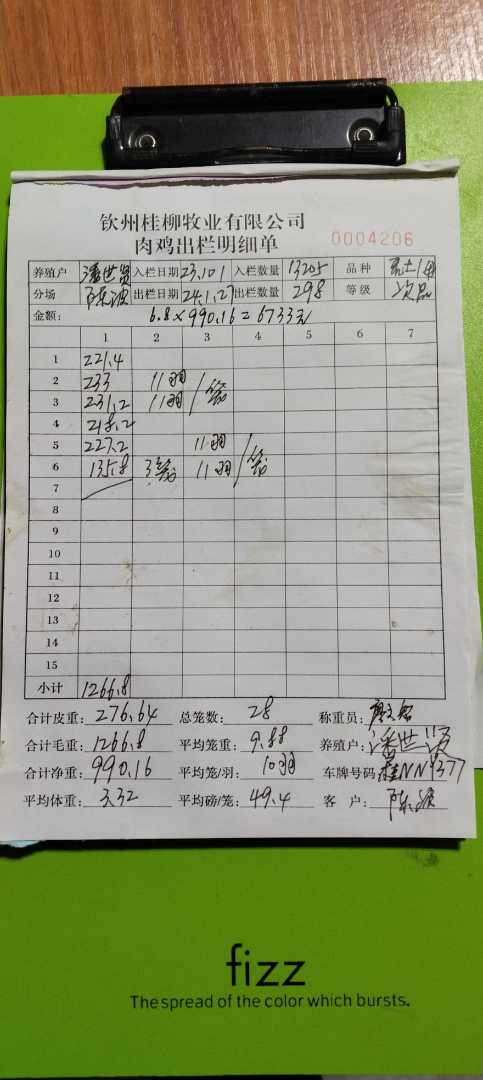 钦州桂柳牧业有限公司
肉鸡出栏明细单 0004206
养殖户 潘世贤 入栏日期 23.10.1 入栏数量 13205 品种
分场 陈波 出栏日期 24.1.27 出栏数量 298 等级 次品
金额: 6.8×990.16=6733元
1 2 3 4 5 6 7
1 221.4
2 233 11羽
3 231.2 11羽/笼
4 218.2
5 227.2 11羽
6 135.8 3笼 11羽/笼
7
8
9
10
11
12
13
14
15
小计 1266.8
合计皮重: 276.64 总笼数: 28 称重员:
合计毛重: 1266.8 平均笼重: 9.88 养殖户: 潘世贤
合计净重: 990.16 平均笼/羽: 10羽 车牌号码 桂NN9377
平均体重: 3.32 平均磅/笼: 49.4 客 户: 陈波
fizz
The spread of the color which bursts.